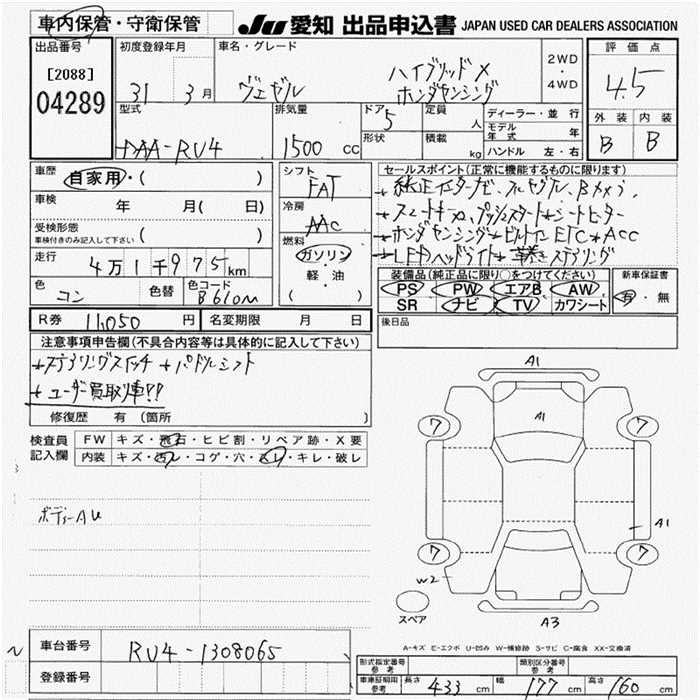 車内保管・守衛保管
JU 愛知 出品申込書 JAPAN USED CAR DEALERS ASSOCIATION
出品番号 [2088] 04289
初度登録年月 31 3月
車名・グレード ヴェゼル ハイブリッドX ホンダセンシング
2WD・4WD
評価点 4.5
外装 B 内装 B
型式 DAA-RU4
排気量 1500 cc
ドア 5
形状
定員 人
積載 kg
ディーラー・並行
モデル年式 年
ハンドル 左・右
車歴 自家用・( )
車検 年 月( 日)
受検形態 車検付きのみ記入して下さい ( )
走行 4万1千975km
色 コン 色替 色コード B610M
シフト FAT
冷房 AAC
燃料 ガソリン・軽・油 ( )
セールスポイント(正常に機能するものに限ります)
+純正インターナビ、フルセグTV、Bカメラ
+スマートキー×2、プッシュスタート+シートヒーター
+ホンダセンシング+ビルトインETC+ACC
+LEDヘッドライト+革巻きステアリング
装備品(純正品に限り○をつけてください)
PS PW エアB AW
SR ナビ TV カワシート
新車保証書 有・無
R券 11,050 円 名変期限 月 日
後日品
注意事項申告欄(不具合内容等は具体的に記入して下さい)
+ステアリングスイッチ +パドルシフト
+ユーザー買取り車!!
修復歴 有(箇所 )
検査員記入欄
FW キズ・飛石・ヒビ割・リペア跡・X要
内装 キズ・汚レ・コゲ・穴・スレ・キレ・破レ
ボディーAU
A1
A1
7 7
A1
7 7
W2
スペア
A3
A-キズ E-エクボ U-凹み W-補修跡 S-サビ C-腐食 XX-交換済
車台番号 RU4-1308065
登録番号
形式指定番号 参考 類別区分番号 参考
車庫証明用 参考 長さ 433 cm 幅 177 cm 高さ 160 cm